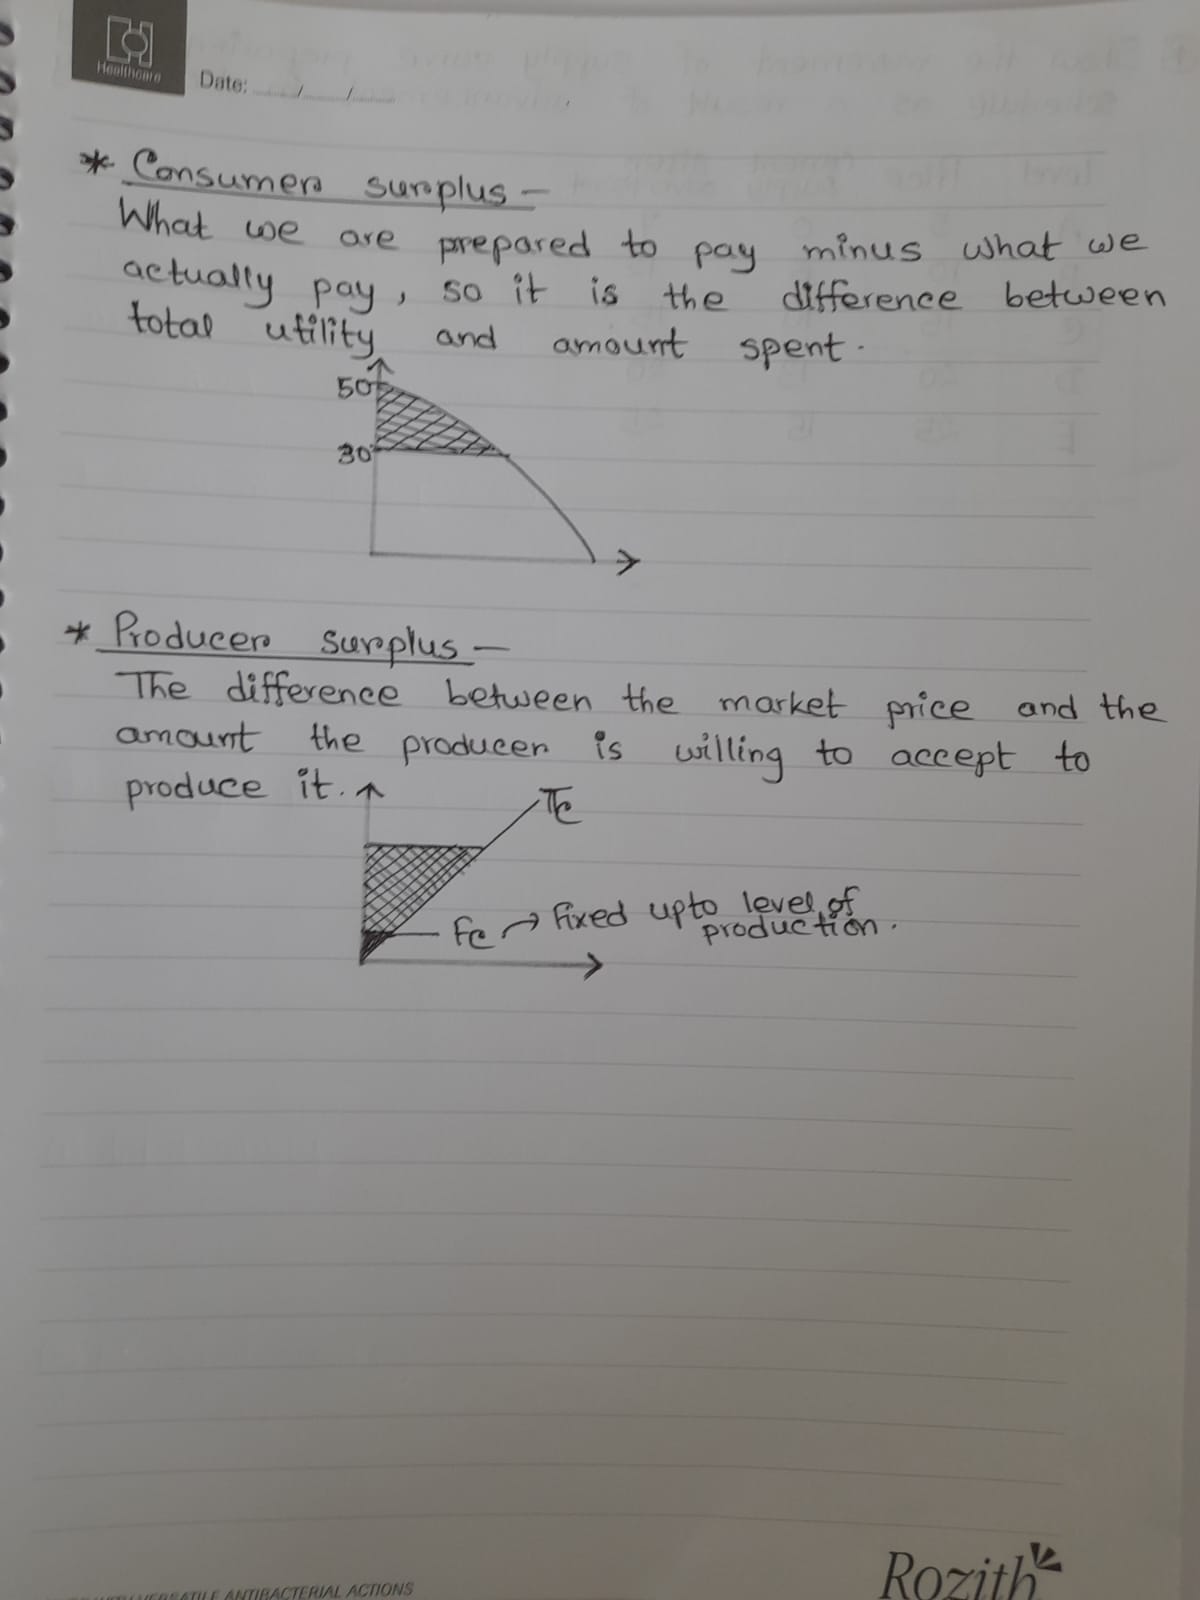 Healthcare
Date: __/__/__
* Consumer surplus –
What we are prepared to pay minus what we
actually pay, so it is the difference between
total utility and amount spent.
50
30
* Producer surplus –
The difference between the market price and the
amount the producer is willing to accept to
produce it.
TC
FC → Fixed upto level of
production.
VERSATILE ANTIBACTERIAL ACTIONS
Rozith